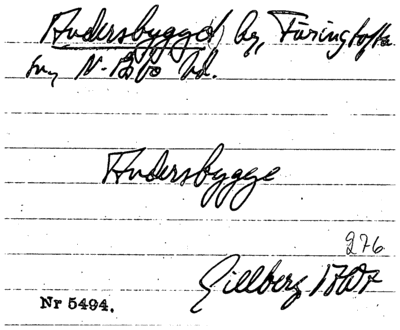 Andersbygget, by, Färingtofta
sn, N. Åsbo hd.
Andersbygge
276
Gillberg 1767
Nr 5494.